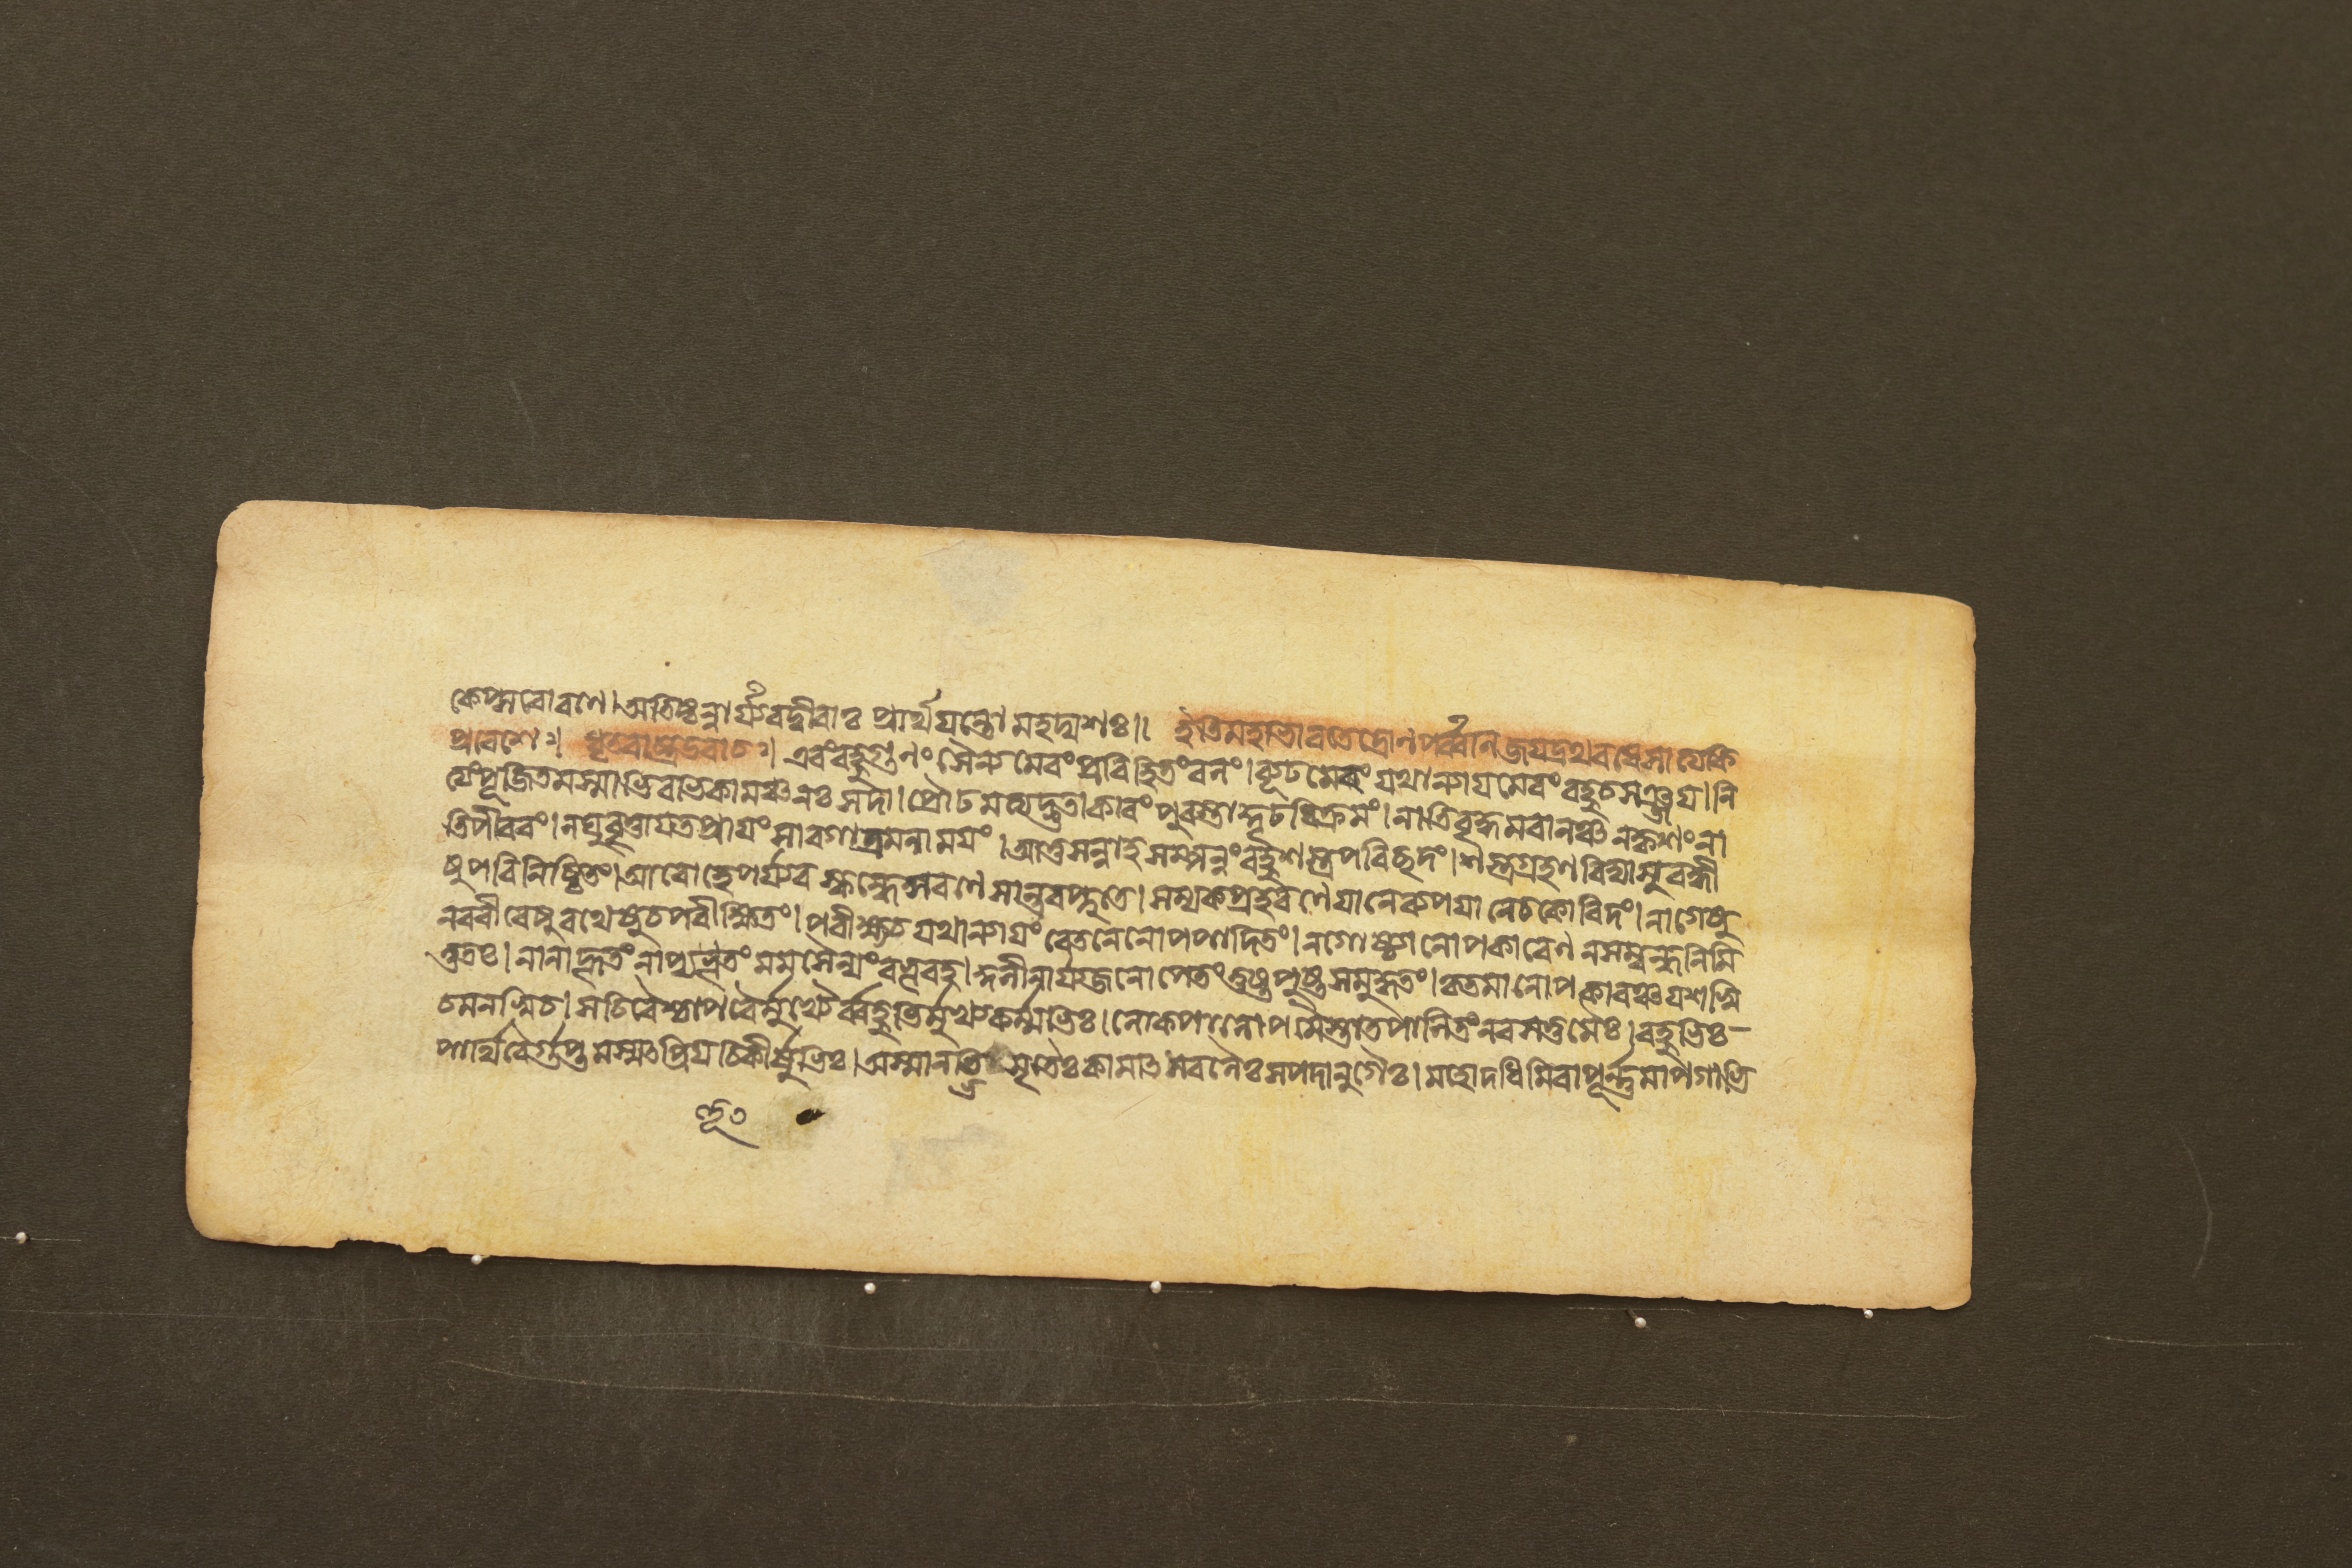 কেপ্সরোরণে। অতিষ্ঠন্নার্য্যবদ্বীরাঃ প্রার্থযন্তো মহদ্যশঃ॥ ইতিমহাভারতেদ্রোনপর্ব্বনিজযদ্রথবধেসাত্যেকি
প্রবেশঃ। ধৃতরাষ্ট্রউবাচঃ। এবংবহুগুনং সৈন্যমেবং প্রবিহিতংবলং। ব্যূঢমেবং যথান্যাযমেবং বহুচসঞ্জয। নি
ত্যংপূজিতমস্মাভিরভিকামঞ্চনঃ সদা। প্রৌঢমত্যদ্ভুতাকারং পুরস্তাদ্দৃঢবিক্রমং। নাতিবৃদ্ধমবালঞ্চ নকৃশংনা
তিপীবরং। লঘুবৃত্তাযতপ্রাযং সারগাত্রমনামযং। আত্তসন্নাহসম্পন্নং বহুশস্ত্রপরিচ্ছদং। শস্ত্রগ্রহণবিদ্যাসুবহ্বী
ষুপরিনিষ্ঠিতং। আরোহেপর্য্যবস্কন্দেসরণেসান্তরপ্লুতে। সম্যকপ্রহরণেযানেব্যপযানেচকোবিদং। নাগেষু
নরবীরেষুরথেষুচপরীক্ষিতং। পরীক্ষ্যচযথান্যাযং বেতনেনোপপাদিতং। নগোষ্ঠ্যানোপকারেণ নসম্বন্ধনিমি
ত্ততঃ। নানাহূতংনাপ্যভৃতংমমসৈন্যংবভূবহ। কুলীনার্য্যজনোপেতংতুষ্টপুষ্টমনুদ্ধতং। কৃতমানোপকারঞ্চযশস্বি
চমনস্বিচ। সচিবৈশ্চাপরৈর্মুখ্যৈর্ব্বহুভির্মুখ্যকর্ম্মভিঃ। লোকপালোপমৈস্তাতপালিতংনরসত্তমৈঃ। বহুভিঃ-
পার্থিবৈর্গুপ্তমস্মৎপ্রিযচিকীর্ষুভিঃ। অস্মানভিসৃতৈঃকামাৎসবলৈঃসপদানুগৈঃ। মহোদধিমিবাপূর্ণ্ণমাপগাভি